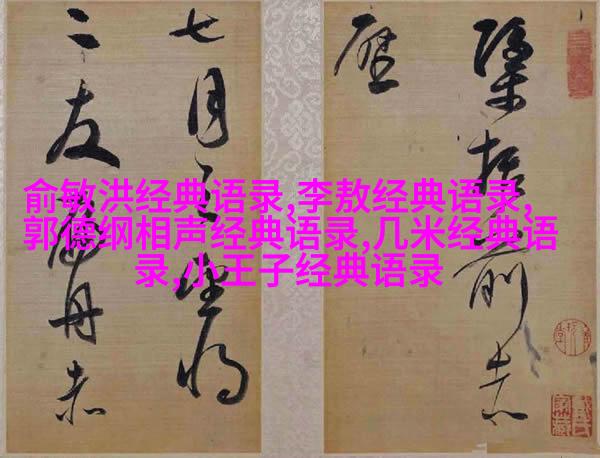 括前赤
壁
七月之望将
二友舟赤
俞敏洪经典语录,李敖经典语录,
郭德纲相声经典语录,几米经典语
录,小王子经典语录